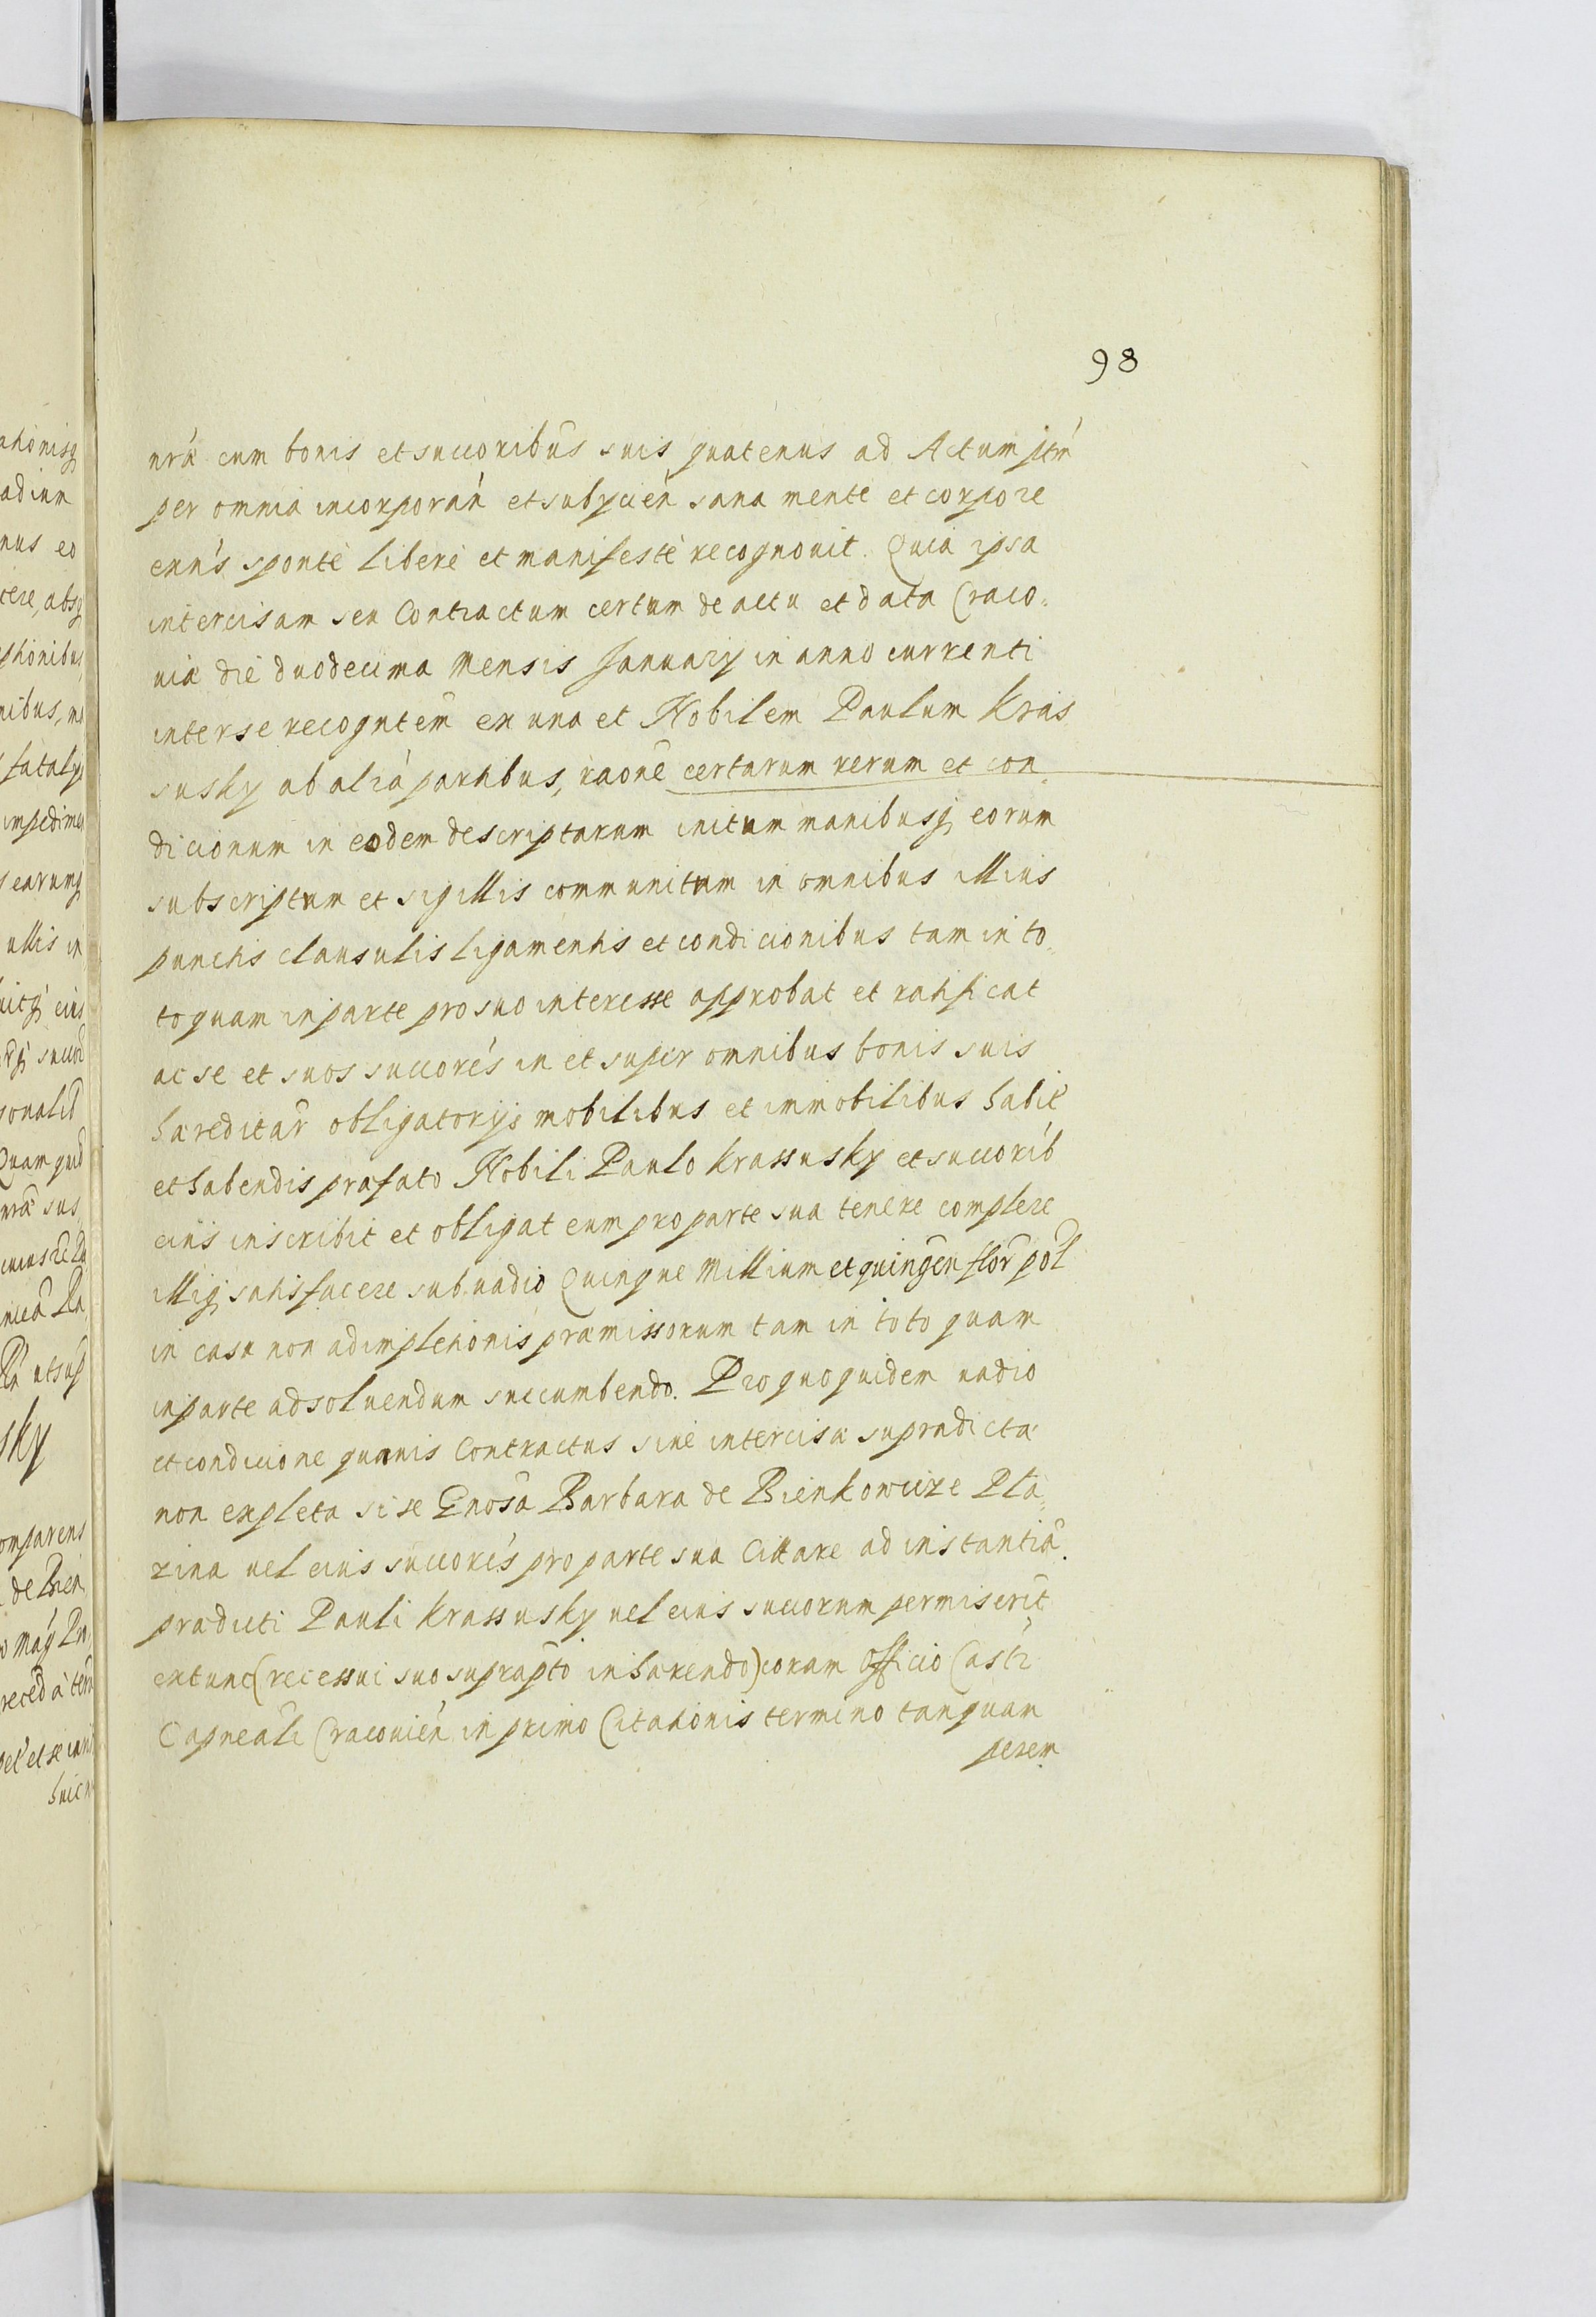 98
nrã cum bonis et successoribus suis quatenus ad Actum ptm̃
per omnia incorporań et subycień sana mente et corpore
enńs sponte libere et manifeste recognouit. Quia ipsa
intercisam seu Contractum certum de actu et data Craco=
uiæ die duodecima Mensis January in anno currenti
inter se recogntem̃ ex una et Nobilem Paulum Kras
susky ab aliá partibus, raonẽ certarum rerum et con
dicionum in eodem descriptarum initum manibusq̨ eorum
subscriptum et sigillis communitum in omnibus illius
punctis clausulis ligamentis et condicionibus tam in to=
to quam in parte pro suo interesse approbat et ratificat
ac se et suos succorés in et super omnibus bonis suis
hæreditar̃ obligatorijs mobilibus et immobilibus habit̃
et habendis præfato Nobili Paulo Krassusky et succorib́
eius inscribit et obligat eum pro parte sua tenere complere
illiq̨ satisfacere sub vadio Quinque Millium et quingeñ flor̃ pol̃
in casu non adimpletionis præmissorum tam in toto quam
in parte ad soluendum succumbendo. Pro quo quidem vadio
et condicione quauis Contractus siue intercisæ supradictæ
non expleta si se Gnosã Barbara de Bienkowicze Pla=
zina uel eius succorés pro parte sua Cittare ad instantiã
prædicti Pauli Krassusky uel eius succorum permiserit
extunc (recessui suo supraptõ inhærendo) coram Officio Castri
Capneãli Cracouień in primo Citationis termino tanquam
perem